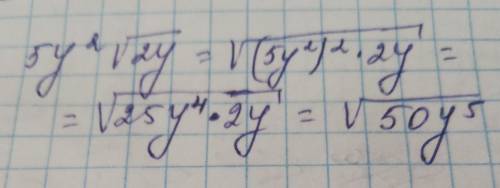 5y²√(2y) = √((5y²)² · 2y) =
= √(25y⁴ · 2y) = √(50y⁵)